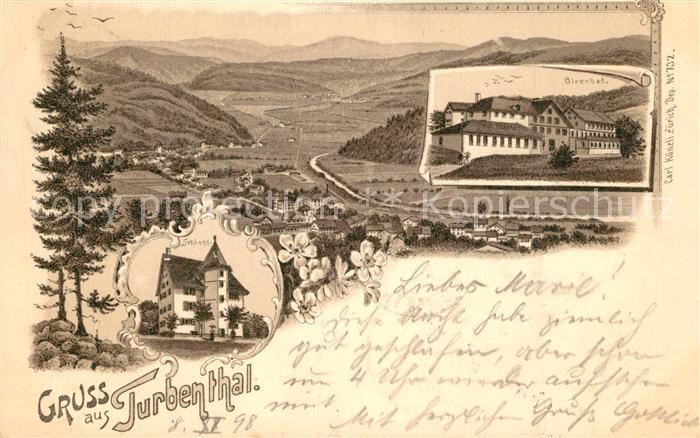 Girenbad.
Carl Künzli Zürich, Dep. No 732.
Schloss
Liebes Marie!
Diese Nacht habe ziemlich
gut geschlafen, aber schon
um 4 Uhr wieder aufstehen
mit Herzlichen Gruß
GRUSS aus Turbenthal.
8. XI 98